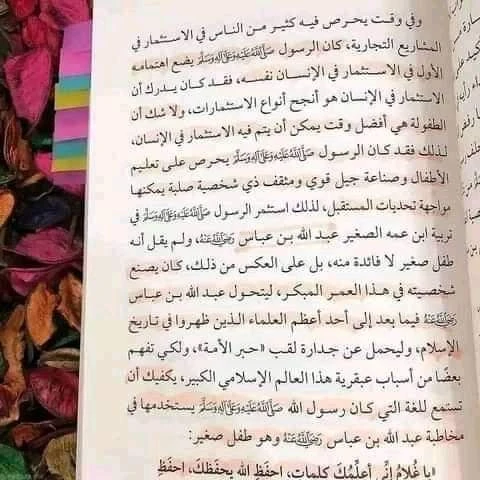 وفي وقت يحرص فيه كثير من الناس في الاستثمار في
المشاريع التجارية، كان الرسول ﷺ يضع اهتمامه
الأول في الاستثمار في الإنسان نفسه، فقد كان يدرك أن
الاستثمار في الإنسان هو أنجح أنواع الاستثمارات، ولا شك أن
الطفولة هي أفضل وقت يمكن أن يتم فيه الاستثمار في الإنسان،
لذلك فقد كان الرسول ﷺ يحرص على تعليم
الأطفال وصناعة جيل قوي ومثقف ذي شخصية صلبة يمكنها
مواجهة تحديات المستقبل، لذلك استثمر الرسول ﷺ في
تربية ابن عمه الصغير عبد الله بن عباس رضي الله عنه، ولم يقل أنه
طفل صغير لا فائدة منه، بل على العكس من ذلك، كان يصنع
شخصيته في هذا العمر المبكر، ليتحول عبد الله بن عباس
رضي الله عنه فيما بعد إلى أحد أعظم العلماء الذين ظهروا في تاريخ
الإسلام، وليحمل عن جدارة لقب «حبر الأمة»، ولكي تفهم
بعضًا من أسباب عبقرية هذا العالم الإسلامي الكبير، يكفيك أن
تستمع للغة التي كان رسول الله ﷺ يستخدمها في
مخاطبة عبد الله بن عباس رضي الله عنه وهو طفل صغير:
«يا غُلامُ إنِّي أعلِّمُكَ كلِماتٍ، احفَظِ اللهَ يحفَظكَ، احفَظِ